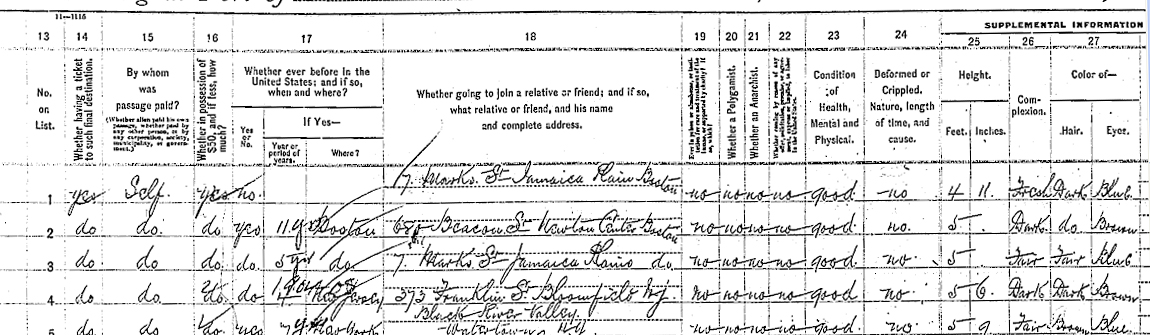 11-1115
13 14 15 16 17 18 19 20 21 22 23 24 SUPPLEMENTAL INFORMATION
25 26 27
No. on List.
Whether having a ticket to such final destination.
By whom was passage paid?
(Whether alien paid his own passage, whether paid by any other person, or by any corporation, society, municipality, or government.)
Whether in possession of $50, and if less, how much?
Whether ever before in the United States; and if so, when and where?
Yes or No.
If Yes—
Year or period of years.
Where?
Whether going to join a relative or friend; and if so, what relative or friend, and his name and complete address.
Whether a Polygamist.
Whether an Anarchist.
Condition of Health, Mental and Physical.
Deformed or Crippled. Nature, length of time, and cause.
Height.
Feet. Inches.
Complexion.
Color of—
Hair. Eyes.
1 yes Self. yes no. 7. Marks. St Jamaica Plain Boston no no no no good no 4 11. Fresh Dark Blue
2 do do. do yes 11 yrs Boston 680 Beacon St Newton Center Boston no no no no good no. 5 . Dark do. Brown
3 do. do do do. 5 yrs do. 7. Marks St Jamaica Plains do. no no no no good. no. 5 Fair Fair Blue
4 do. do. do. do 373 Franklin St. Bloomfield N.J. no no no no good no. 5 6. Dark Dark Brown
Black River Valley.
5 do. do do. yes 7 yrs New York Watertown N.Y. no no no no good no. 5 9 Fair Brown Blue